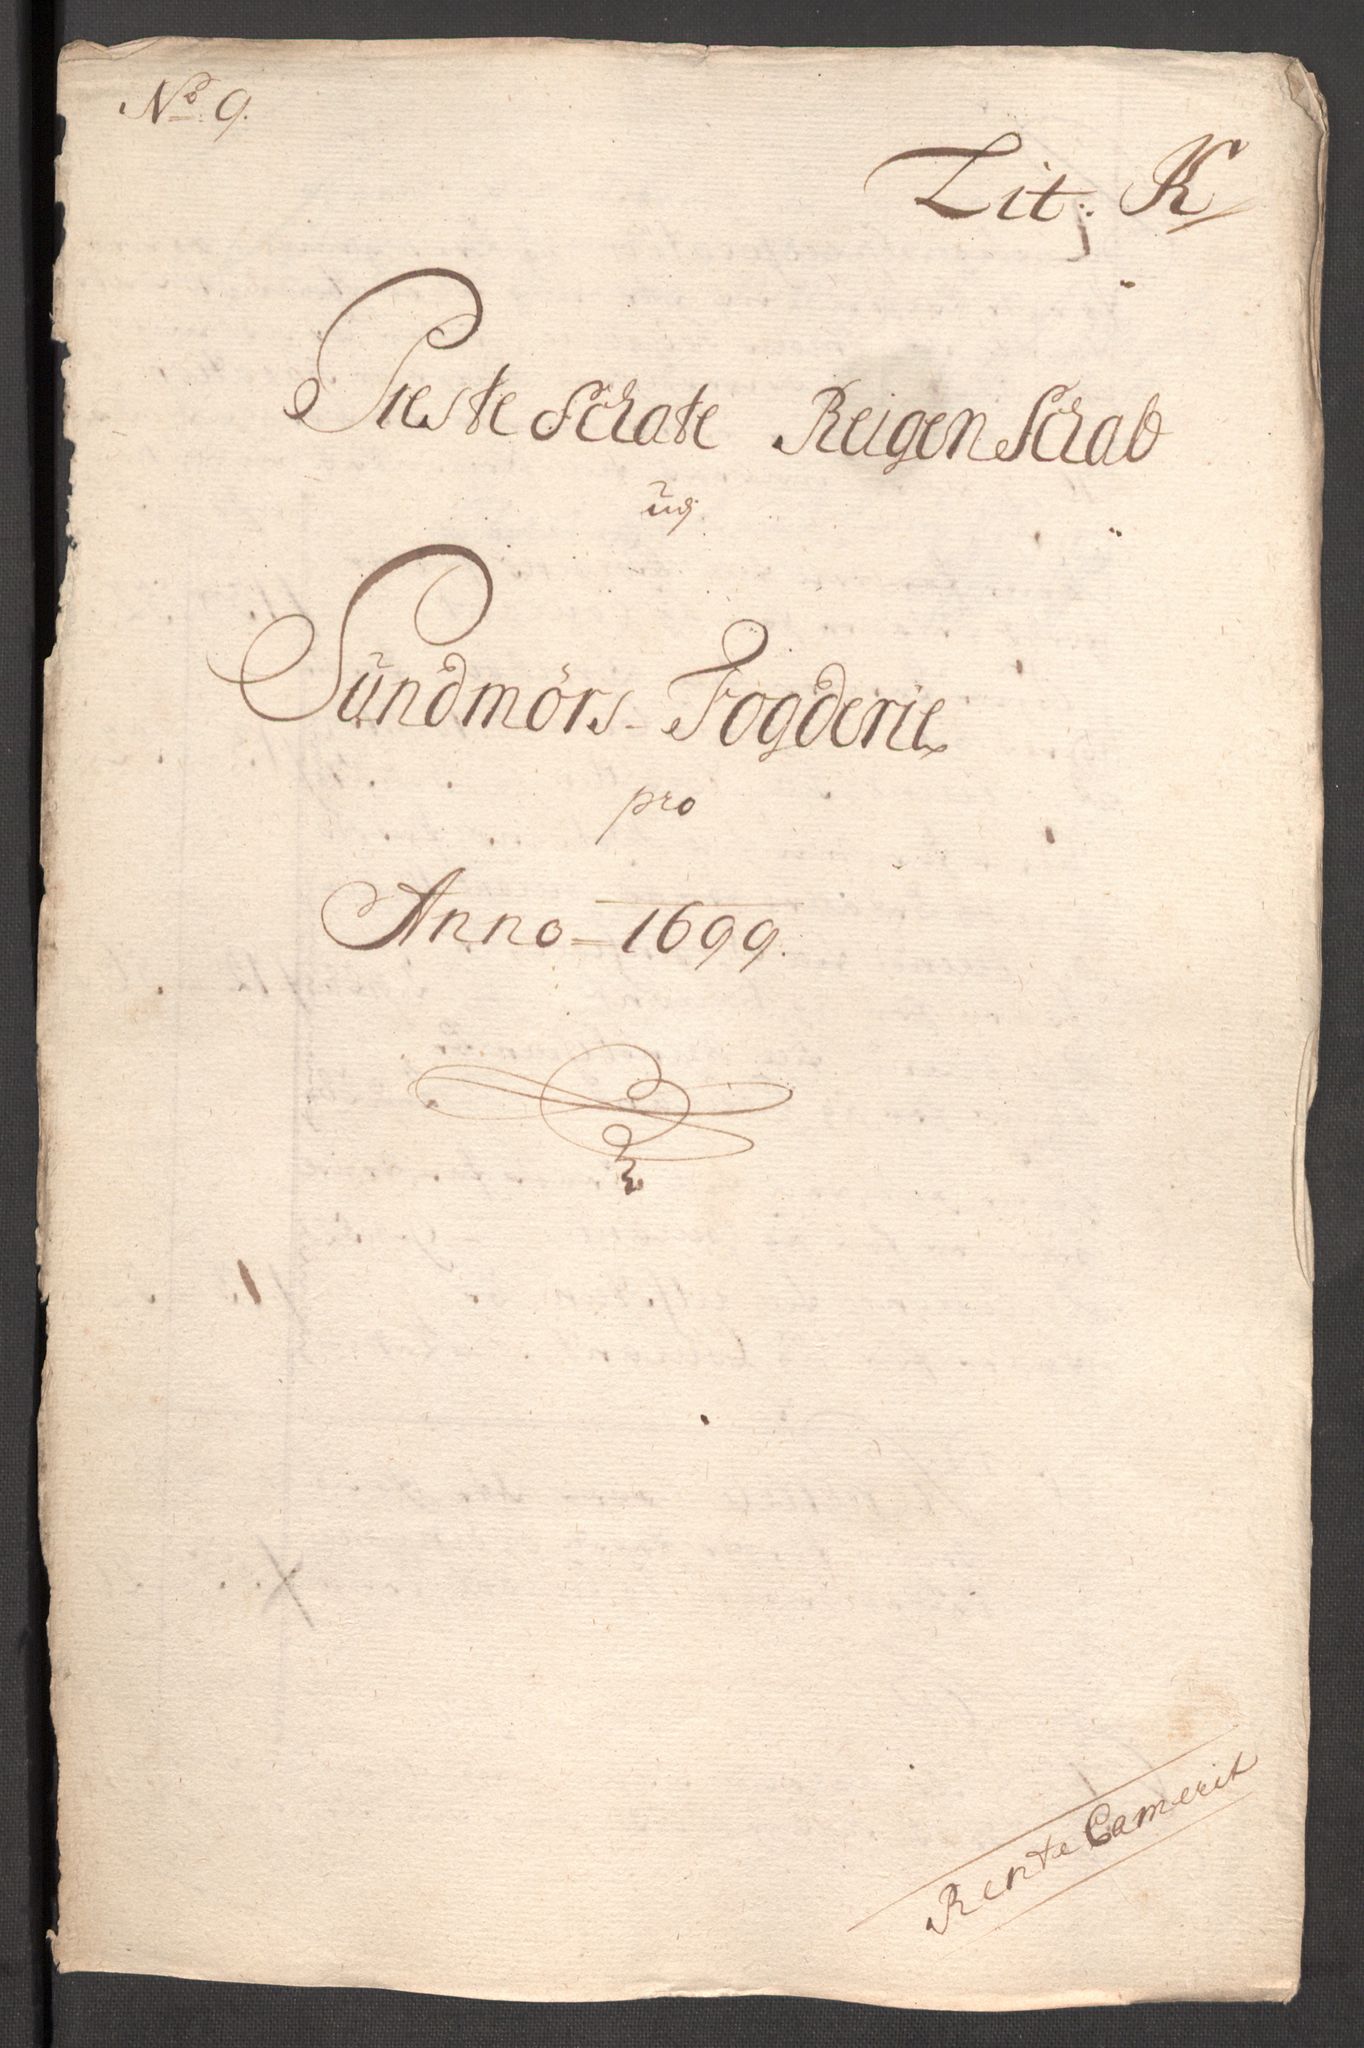 No 9.
Lit: K
PresteSchate ReigenSchab
ug
Sundmörs- Fogderie
pro
Anno = 1699.
RenteCamerit